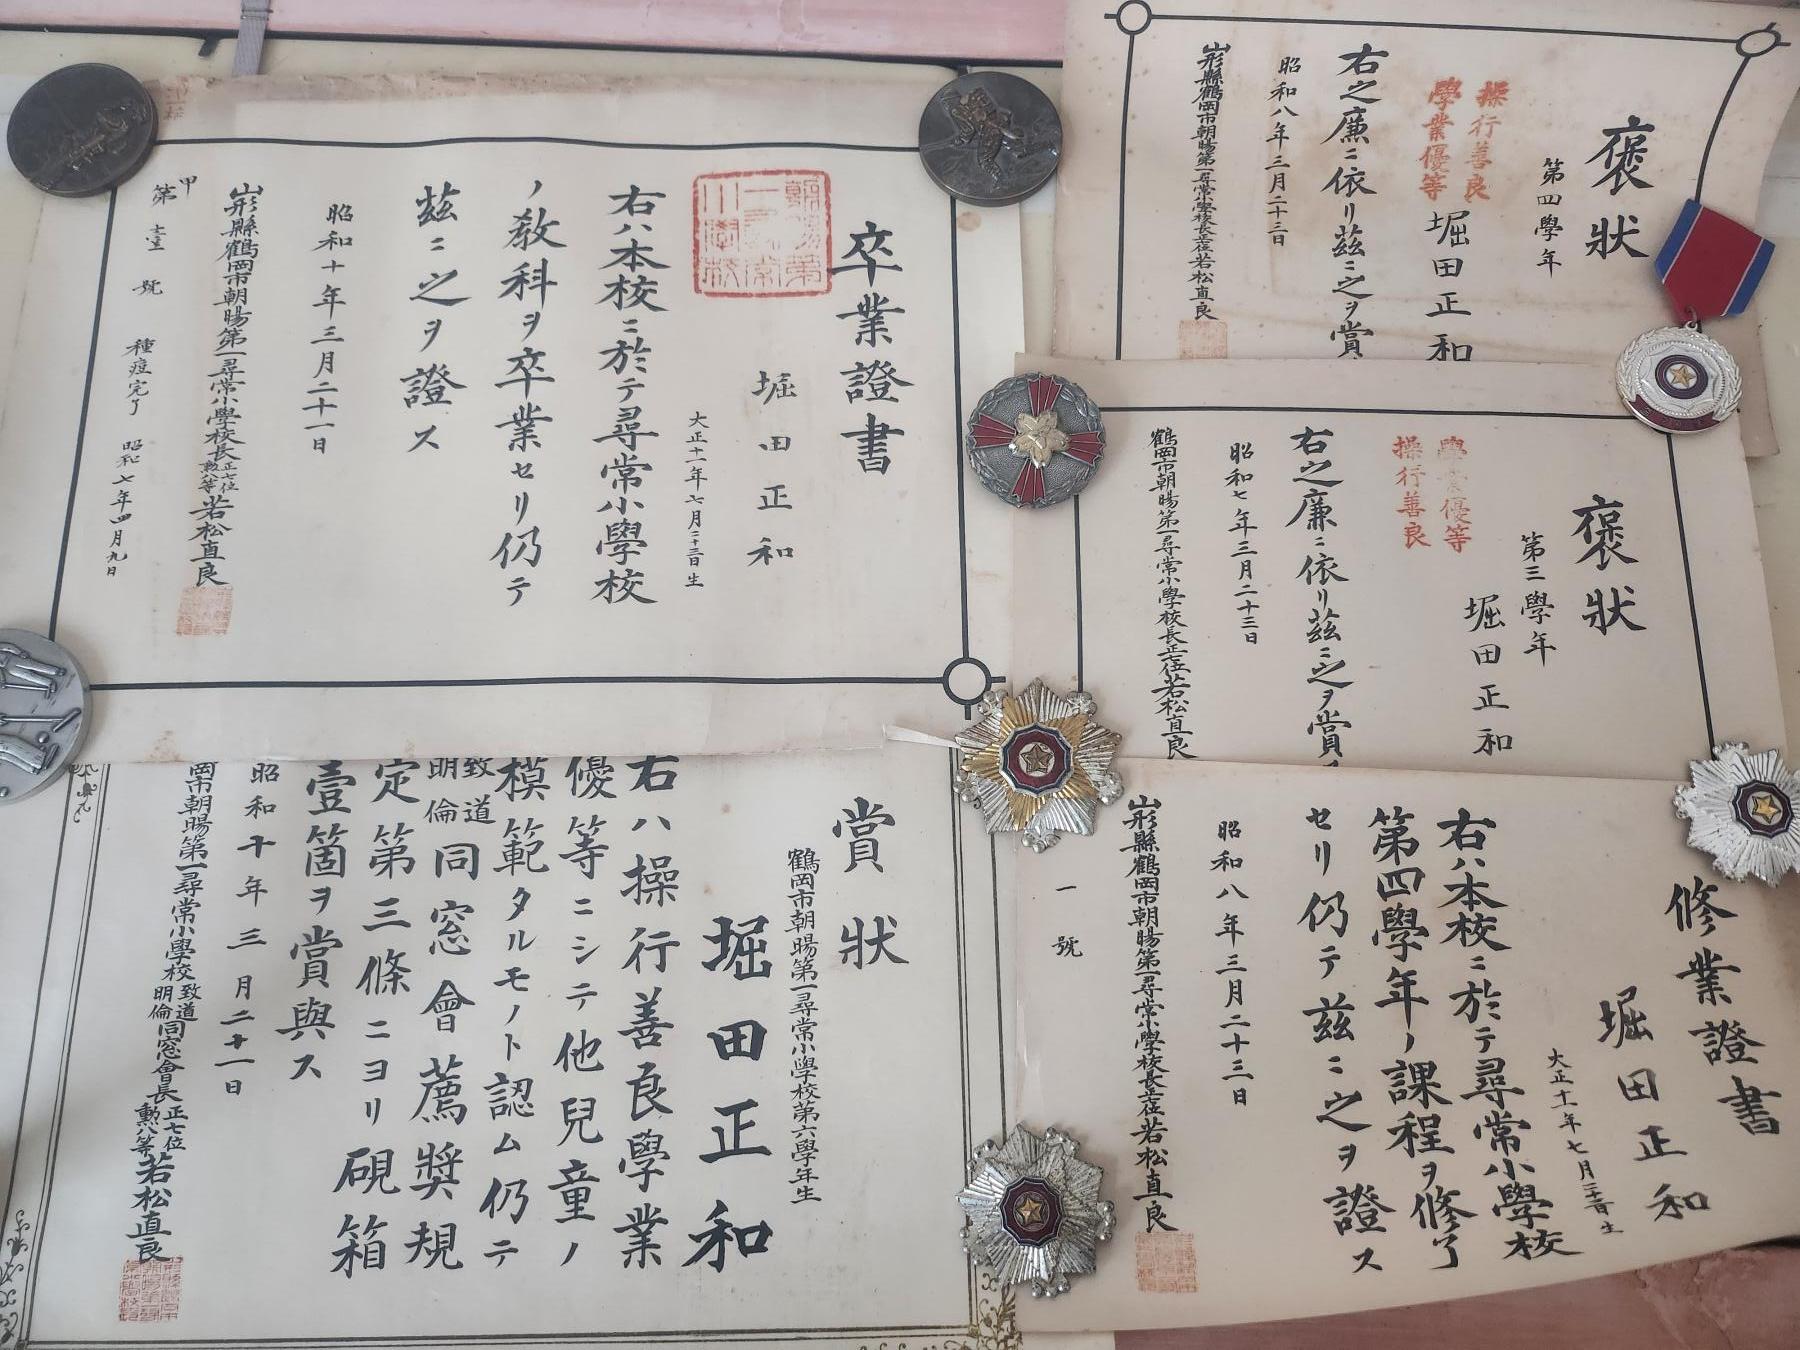 卒業證書
堀田正和
大正十一年七月二十三日生
右ハ本校ニ於テ尋常小學校
ノ教科ヲ卒業セリ仍テ
茲ニ之ヲ證ス
昭和十年三月二十一日
山形縣鶴岡市朝暘第一尋常小學校長正七位勲八等若松直良
甲第壹號
種痘完了 昭和七年四月九日
褒狀
第四學年
堀田正和
操行善良
學業優等
右之廉ニ依リ茲ニ之ヲ賞
昭和八年三月二十三日
山形縣鶴岡市朝暘第一尋常小學校長正七位若松直良
褒狀
第三學年
堀田正和
學業優等
操行善良
右之廉ニ依リ茲ニ之ヲ賞
昭和七年三月二十三日
鶴岡市朝暘第一尋常小學校長正七位若松直良
賞狀
鶴岡市朝暘第一尋常小學校第六學年生
堀田正和
右ハ操行善良學業
優等ニシテ他兒童ノ
模範タルモノト認ム仍テ
致道明倫同窓會薦奬規
定第三條ニヨリ硯箱
壹箇ヲ賞與ス
昭和十年三月二十一日
岡市朝暘第一尋常小學校致道明倫同窓會長正七位勲八等若松直良
修業證書
堀田正和
大正十一年七月二十三日生
右ハ本校ニ於テ尋常小學校
第四學年ノ課程ヲ修了
セリ仍テ茲ニ之ヲ證ス
昭和八年三月二十三日
山形縣鶴岡市朝暘第一尋常小學校長正七位若松直良
一號